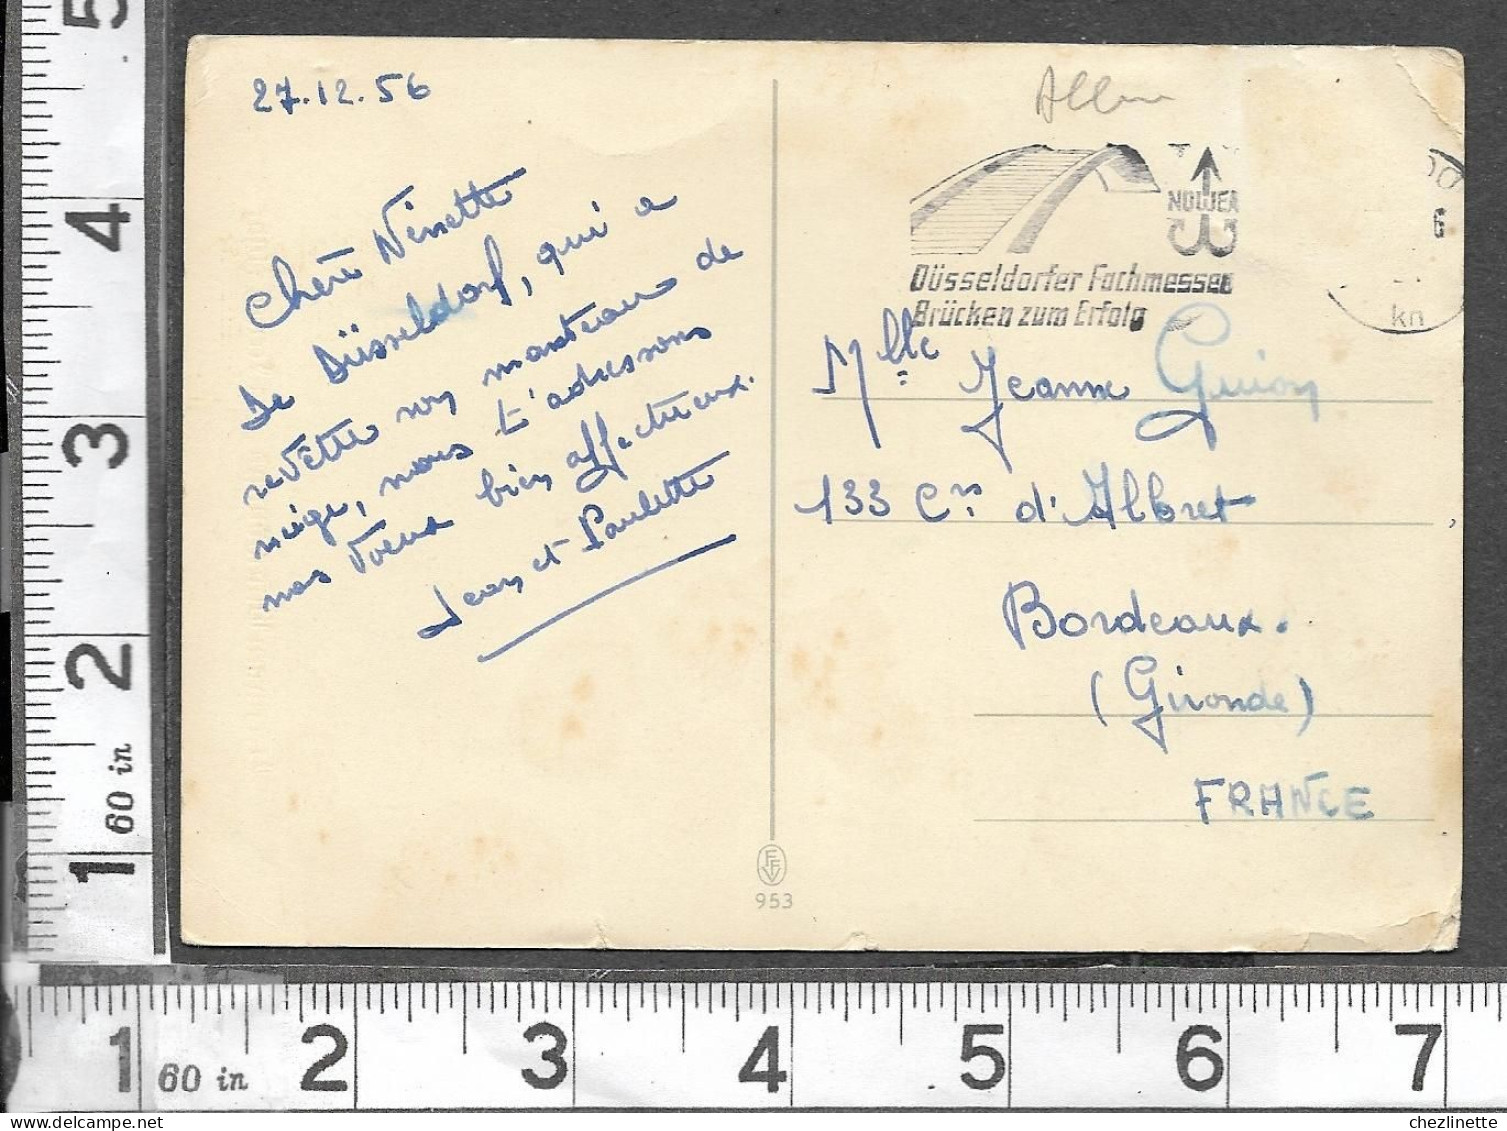 27.12.56
Chère Ninette
De Düsseldorf, qui a
revêtu son manteau de
neige, nous t'adressons
nos vœux bien affectueux.
Jean et Paulette
NOWEA
Düsseldorfer Fachmessen
Brücken zum Erfolg
6
kn
Mlle Jeanne Guion
133 Crs d'Albret
Bordeaux.
(Gironde)
FRANCE
953
5
4
3
2
60 in
1
1 60 in 2 3 4 5 6 7
chezlinette